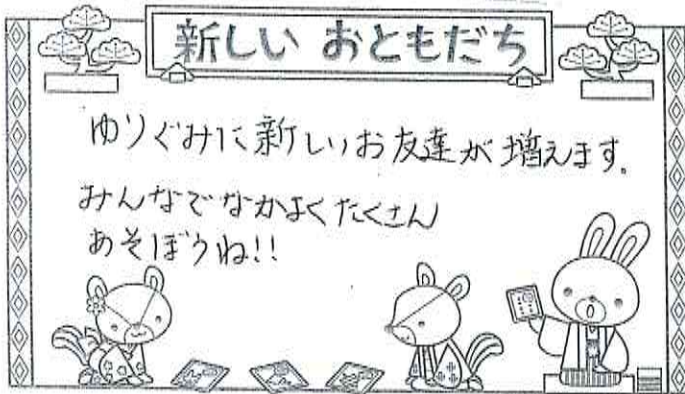 新しい おともだち
ゆりぐみに新しいお友達が増えます。
みんなでなかよくたくさん
あそぼうね!!